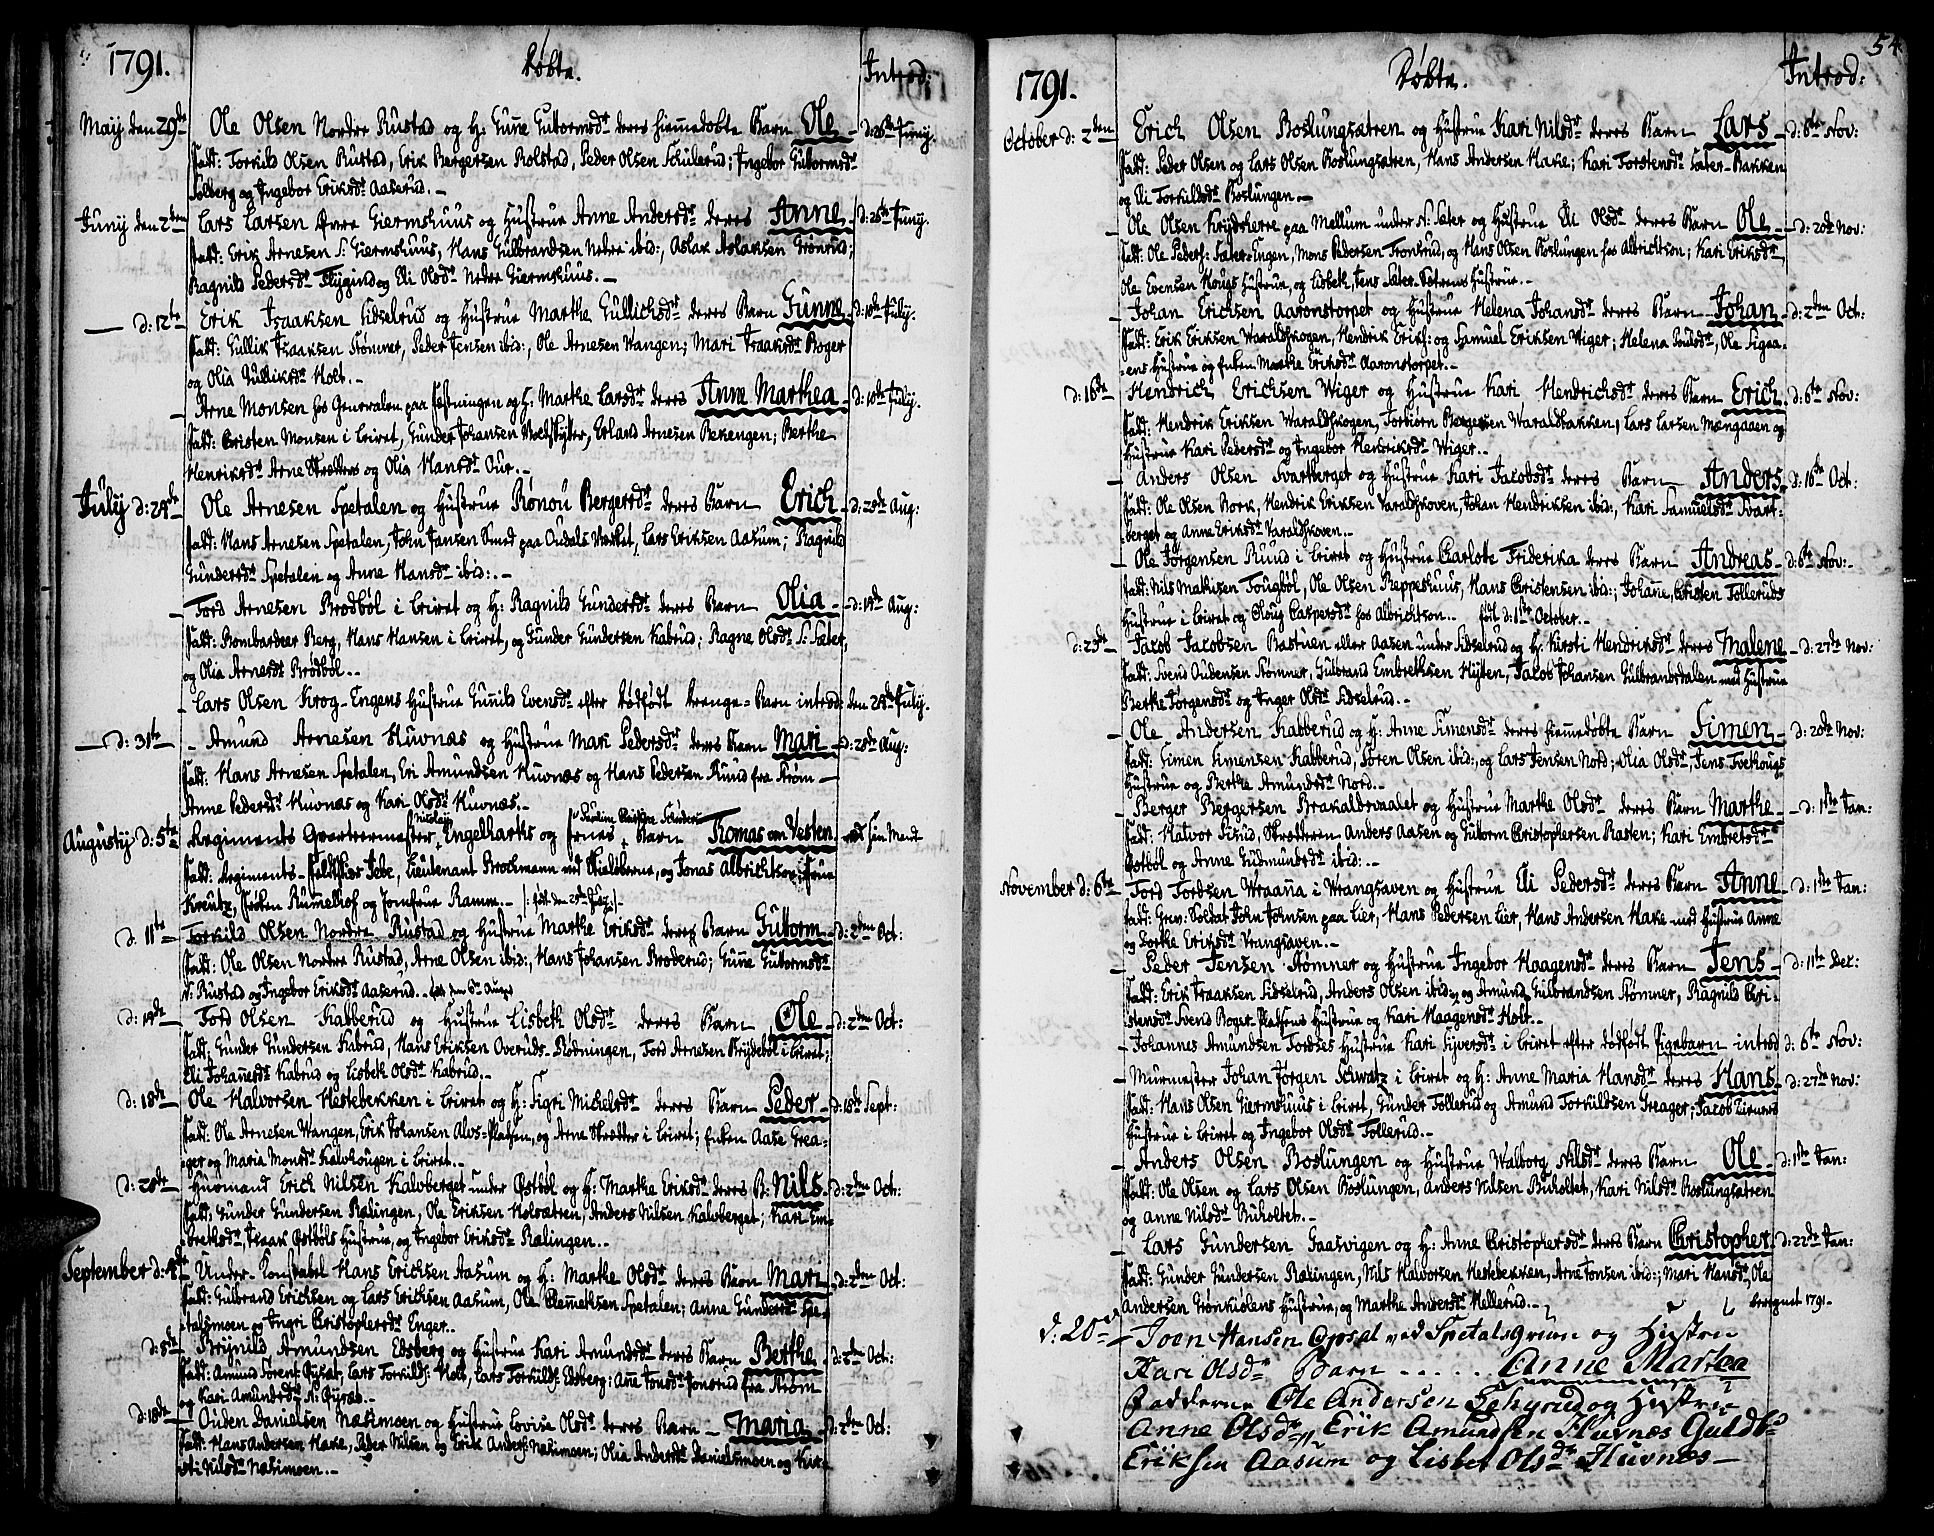 1791.
Döbte.
Introd:
Maij den 29de Ole Olsen Nordre Rustad og H: Guñe Guttormsdr deres hiemmedøbte Barn Ole d: 26de Juny.
Fadd: Torkild Olsen Rustad, Erik Bergersen Rolstad, Peder Olsen Schulerud; Ingebor Guttormsdr
Solberg og Ingebor Eriksdr Aaserud.
Juny den 2den Lars Larsen Øvre Giermshuus og Hustrue Anne Andersdr deres Anne d: 26de Juny.
Fadd: Erik Arnesen S: Giermshuus, Hans Gulbrandsen Nedre ibid:, Aslak Aslaksen Grønrud;
Ragnild Pedersdr Flygind og Eli Olsdr Nedre Giermshuus.
d: 12te Erik Isaaksen Sidselrud og Hustrue Marthe Gullichsdr deres Barn Gunne d: 10de July.
Fadd: Gullik Isaaksen Stømner, Peder Jensen ibid:, Ole Arnesen Wangen; Mari Isaaksdr Boger
og Olia Gulliksdr Holt.
Arne Monsen hos Generalen paa Fæstningen og H: Marthe Larsdr deres Anne Marthea d: 10de July.
Fadd: Christen Monsen i Leiret, Gunder Johansen Vedskyter, Erland Arnesen Bekengen; Berthe
Henriksdr Arne Skrædders og Olia Hansdr Our.
July d: 24de Ole Arnesen Spetalen og Hustrue Rønou Bergersdr deres Barn Erich d: 28de Aug:
Fadd: Hans Arnesen Spetalen, John Jansen Smed paa Oudals Verket, Lars Eriksen Aasum; Ragnild
Gundersdr Spetalen og Anne Hansdr ibid:.
Tord Arnesen Brødbøl i Leiret og H: Ragnild Gundersdr deres Barn Olia d: 14de Aug:
Fadd: Bombardeer Berg, Hans Hansen i Leiret, og Gunder Gundersen Kabrud; Ragne Olsdr S: Sæter,
og Olia Arnesdr Brødbøl.
Lars Olsen Krog-Engens Hustrue Gunild Evensdr efter dødfødt Drenge-Barn introd: den 24de July.
d: 31te Amund Arnesen Huvnæs og Hustrue Mari Pedersdr deres Barn Mari d: 28de Aug:
Fadd: Hans Arnesen Spetalen, Eri Amundsen Huvnæs og Hans Pedersen Ruud fra Strøm
Anne Pedersdr Huvnæs og Kari Olsdr Huvnæs.
Nicolay
Augusty d: 5te Regiments Qvarteermester Engelharts og Frues Barn Thomas von Vesten
Fadd: Regiments-Feldskiær Jebe, Lieutenant Brochmann ved Skieløberne, og Jonas Albrichtson; Frue
Kreutz, Frøken Rummelhof og Jomfrue Ramm.
d: 11te Torkild Olsen Nordre Rustad og Hustrue Marthe Eriksdr deres Barn Guttorm d: 2den Oct:
Fadd: Ole Olsen Nordre Rustad, Arne Olsen ibid:, Hans Johansen Broderud; Guñe Guttormsdr
N: Rustad og Ingebor Eriksdr Aaserud.
d: 14de Tord Olsen Kabberud og Hustrue Lisbeth Olsdr deres Barn Ole d: 2den Oct:
Fadd: Gunder Gundersen Kabrud, Hans Eriksen Overuds-Rødningen, Tord Arnesen Brydebøl i Leiret;
Eli Johañesdr Kabrud og Lisbeth Olsdr Kabrud.
d: 18de Ole Halvorsen Hestebekken i Leiret og H: Sigri Michelsdr deres Barn Peder d: 18de Sept:
Fadd: Ole Arnesen Wangen, Erik Johansen Alvs-Pladsen, og Arne Skrædder i Leiret; Enken Aase Grea-
ger og Maria Monsdr Kalvhougen i Leiret.
d: 28de Huusmand Erich Nilsen Kalvberget under Østbøl og H: Marthe Eriksdr deres B: Nils. d: 2den Oct:
Fadd: Gunder Gundersen Rælingen, Ole Eriksen Holsætren, Anders Nilsen Kalvberget; Kari Em-
brethsdr, Isaak Østbøls Hustrue, og Ingebor Eriksdr Rælingen.
September d: 4de Under-Konstabel Hans Erichsen Aasum og H: Marthe Olsdr deres Barn Mari d: 2den Oct:
Fadd: Gulbrand Erichsen og Lars Erichsen Aasum, Ole Clemethsen Spetalen; Anne Gundersdr Spe-
talsmoen og Ingri Christophersdr Enger.
d: 5te Brynild Amundsen Edsberg og Hustrue Kari Amundsdr deres Barn Berthe d: 2den Oct:
Fadd: Amund Torens: Øysæt, Lars Torkilds: Holt, Lars Torkilds: Edsberg; Añe Jonsdr Jonsrud fra Strøm
og Kari Amundsdr N: Øysæt.
d: 18de Ouden Danielsen Næsimoen og Hustrue Lovise Olsdr deres Barn Maria d: 2den Oct:
Fadd: Hans Andersen Hake, Peder Nilsen og Erik Anders: Næsimoen; Olia Andersdr Danielsmoen og Kir-
sti Nilsdr Næsimoen.
54.
1791.
Döbte.
Introd:
October d: 2den Erich Olsen Boslungsætren og Hustrue Kari Nilsdr deres Barn Lars d: 6te Nov:
Fadd: Peder Olsen og Lars Olsen Boslungsætren, Hans Andersen Hake; Kari Torstensdr Sæter-Bakken
og Eli Torkildsdr Boslungen.
Ole Olsen Krydsherre paa Mellum under N: Sæter og Hustrue Eli Olsdr deres Barn Ole d: 20de Nov:
Fadd: Ole Peders: Sæter-Engen, Mons Pedersen Tronsrud, og Hans Olsen Boslungen hos Albrichtson; Kari Eriksdr,
Ole Evensen Hougs Hustrue, og Lisbeth, Jens Sæter-Østrens Hustrue.
Johan Erichsen Aaronstorpet og Hustrue Helena Johansdr deres Barn Johan d: 2den Oct:
Fadd: Erik Eriksen Waraldskogen, Hendrik Eriks: og Samuel Eriksen Wiger; Helena Poulsdr, Ole Sigaa-
ens Hustrue og Enken Marthe Eriksdr Aaronstorpet.
d: 16de Hendrich Erichsen Wiger og Hustrue Kari Hendrichsdr deres Barn Erich d: 6te Nov:
Fadd: Hendrik Eriksen Waraldskogen, Torbiørn Bergersen Waraldbakken, Lars Larsen Mangaaen og
Hustrue Kari Pedersdr og Ingebor Hendriksdr Wiger.
Anders Olsen Svartberget og Hustrue Kari Jacobsdr deres Barn Anders d: 16de Oct:
Fadd: Ole Olsen Bork, Hendrik Eriksen Varaldskoven, Johan Hendriksen ibid:, Kari Samuelsdr Svart-
berget og Anne Eriksdr Varaldskoven.
Ole Jørgensen Ruud i Leiret og Hustrue Charlotte Friderika deres Barn Andreas d: 6te Nov:
Fadd: Nils Mathisen Tougbøl, Ole Olsen Reppeshuus, Hans Christensen ibid:; Johañe, Christen Tolleruds
Hustrue i Leiret og Oloug Caspersdr hos Albrichtson. født d: 1ste October.
d: 23de Jacob Jacobsen Bastuen eller Aasen under Sidselrud og H: Kirsti Hendriksdr deres Malene d: 27de Nov:
Fadd: Svend Oudensen Stømner, Gulbrand Embrethsen Hyten, Jacob Johansen Gulbrandsdalen med Hustrue
Berthe Jørgensdr og Inger Olsdr Sidselrud.
Ole Andersen Kabberud og H: Anne Simensdr deres hiemmedøbte Barn Simen d: 20de Nov:
Fadd: Simen Simensen Kabberud, Søren Olsen ibid:, og Lars Jensen Nord; Olia Olsdr, Jens Tvethougs
Hustrue og Berthe Amundsdr Nord.
Berger Bergersen Brakaldrøvalet og Hustrue Marthe Olsdr deres Barn Marthe d: 1ste Jan:
Fadd: Halvor Sizud, Skrædderen Anders Aasen og Guttorm Christophersen Rasten; Kari Embretsdr
Østbøl og Anne Gudmundsdr ibid:.
November d: 6te Tord Tordsen Wraaña i Wrangsaven og Hustrue Eli Pedersdr deres Barn Anne d: 1ste Jan:
Fadd: Gren: Soldat John Johnsen paa Lier, Hans Pedersen Lier, Hans Andersen Hake med Hustrue Anne
og Dorthe Eriksdr Vrangsaven.
Peder Jensen Stømner og Hustrue Ingebor Haagensdr deres Barn Jens d: 11te Dec:
Fadd: Erik Isaaksen Sidselrud, Anders Olsen ibid: og Amund Gulbrandsen Stømner, Ragnild Chri-
stensdr Svend Boger-Pladsens Hustrue og Kari Haagensdr Holt.
Johannes Amundsen Tordses Hustrue Kari Syversdr i Leiret efter dødfødt Pigebarn introd d: 6te Nov:
Murmester Johan Jørgen Schwatz i Leiret og H: Anne Maria Hansdr deres Hans d: 27de Nov:
Fadd: Hans Olsen Giermshuus i Leiret, Gunder Tollerud og Amund Torkildsen Greager; Jacob
Hustrue i Leiret og Ingebor Olsdr Tollerud.
Anders Olsen Boslungen og Hustrue Walborg Nilsdr deres Barn Ole d: 1ste Jan:
Fadd: Ole Olsen og Lars Olsen Boslungen, Anders Nilsen Buholtet, Kari Nilsdr Boslungsætren
og Anne Nilsdr Buholtet.
Lars Gundersen Gaasvigen og H: Anne Christophersdr deres Barn Christopher d: 22de Jan:
Fadd: Gunder Gundersen Rælingen, Nils Halvorsen Hestebekken, Arne Jonsen ibid:; Mari Hansdr, Ole
Andersen Grønkiølens Hustrue, og Marthe Andersdr Hellerud.
beregnet 1791.
d: 20de Joen Hansen Opsal ved Spetalsgruen og Hustru
Kari Olsdr Barn . . . . . Anne Martea
Fadderne Ole Andersen Schyrud og Hustru
Anne Olsdr, Erik Amundsen Huvnæs Guldbr
Eriksen Aasum og Lisbet Olsdr Huvnæs